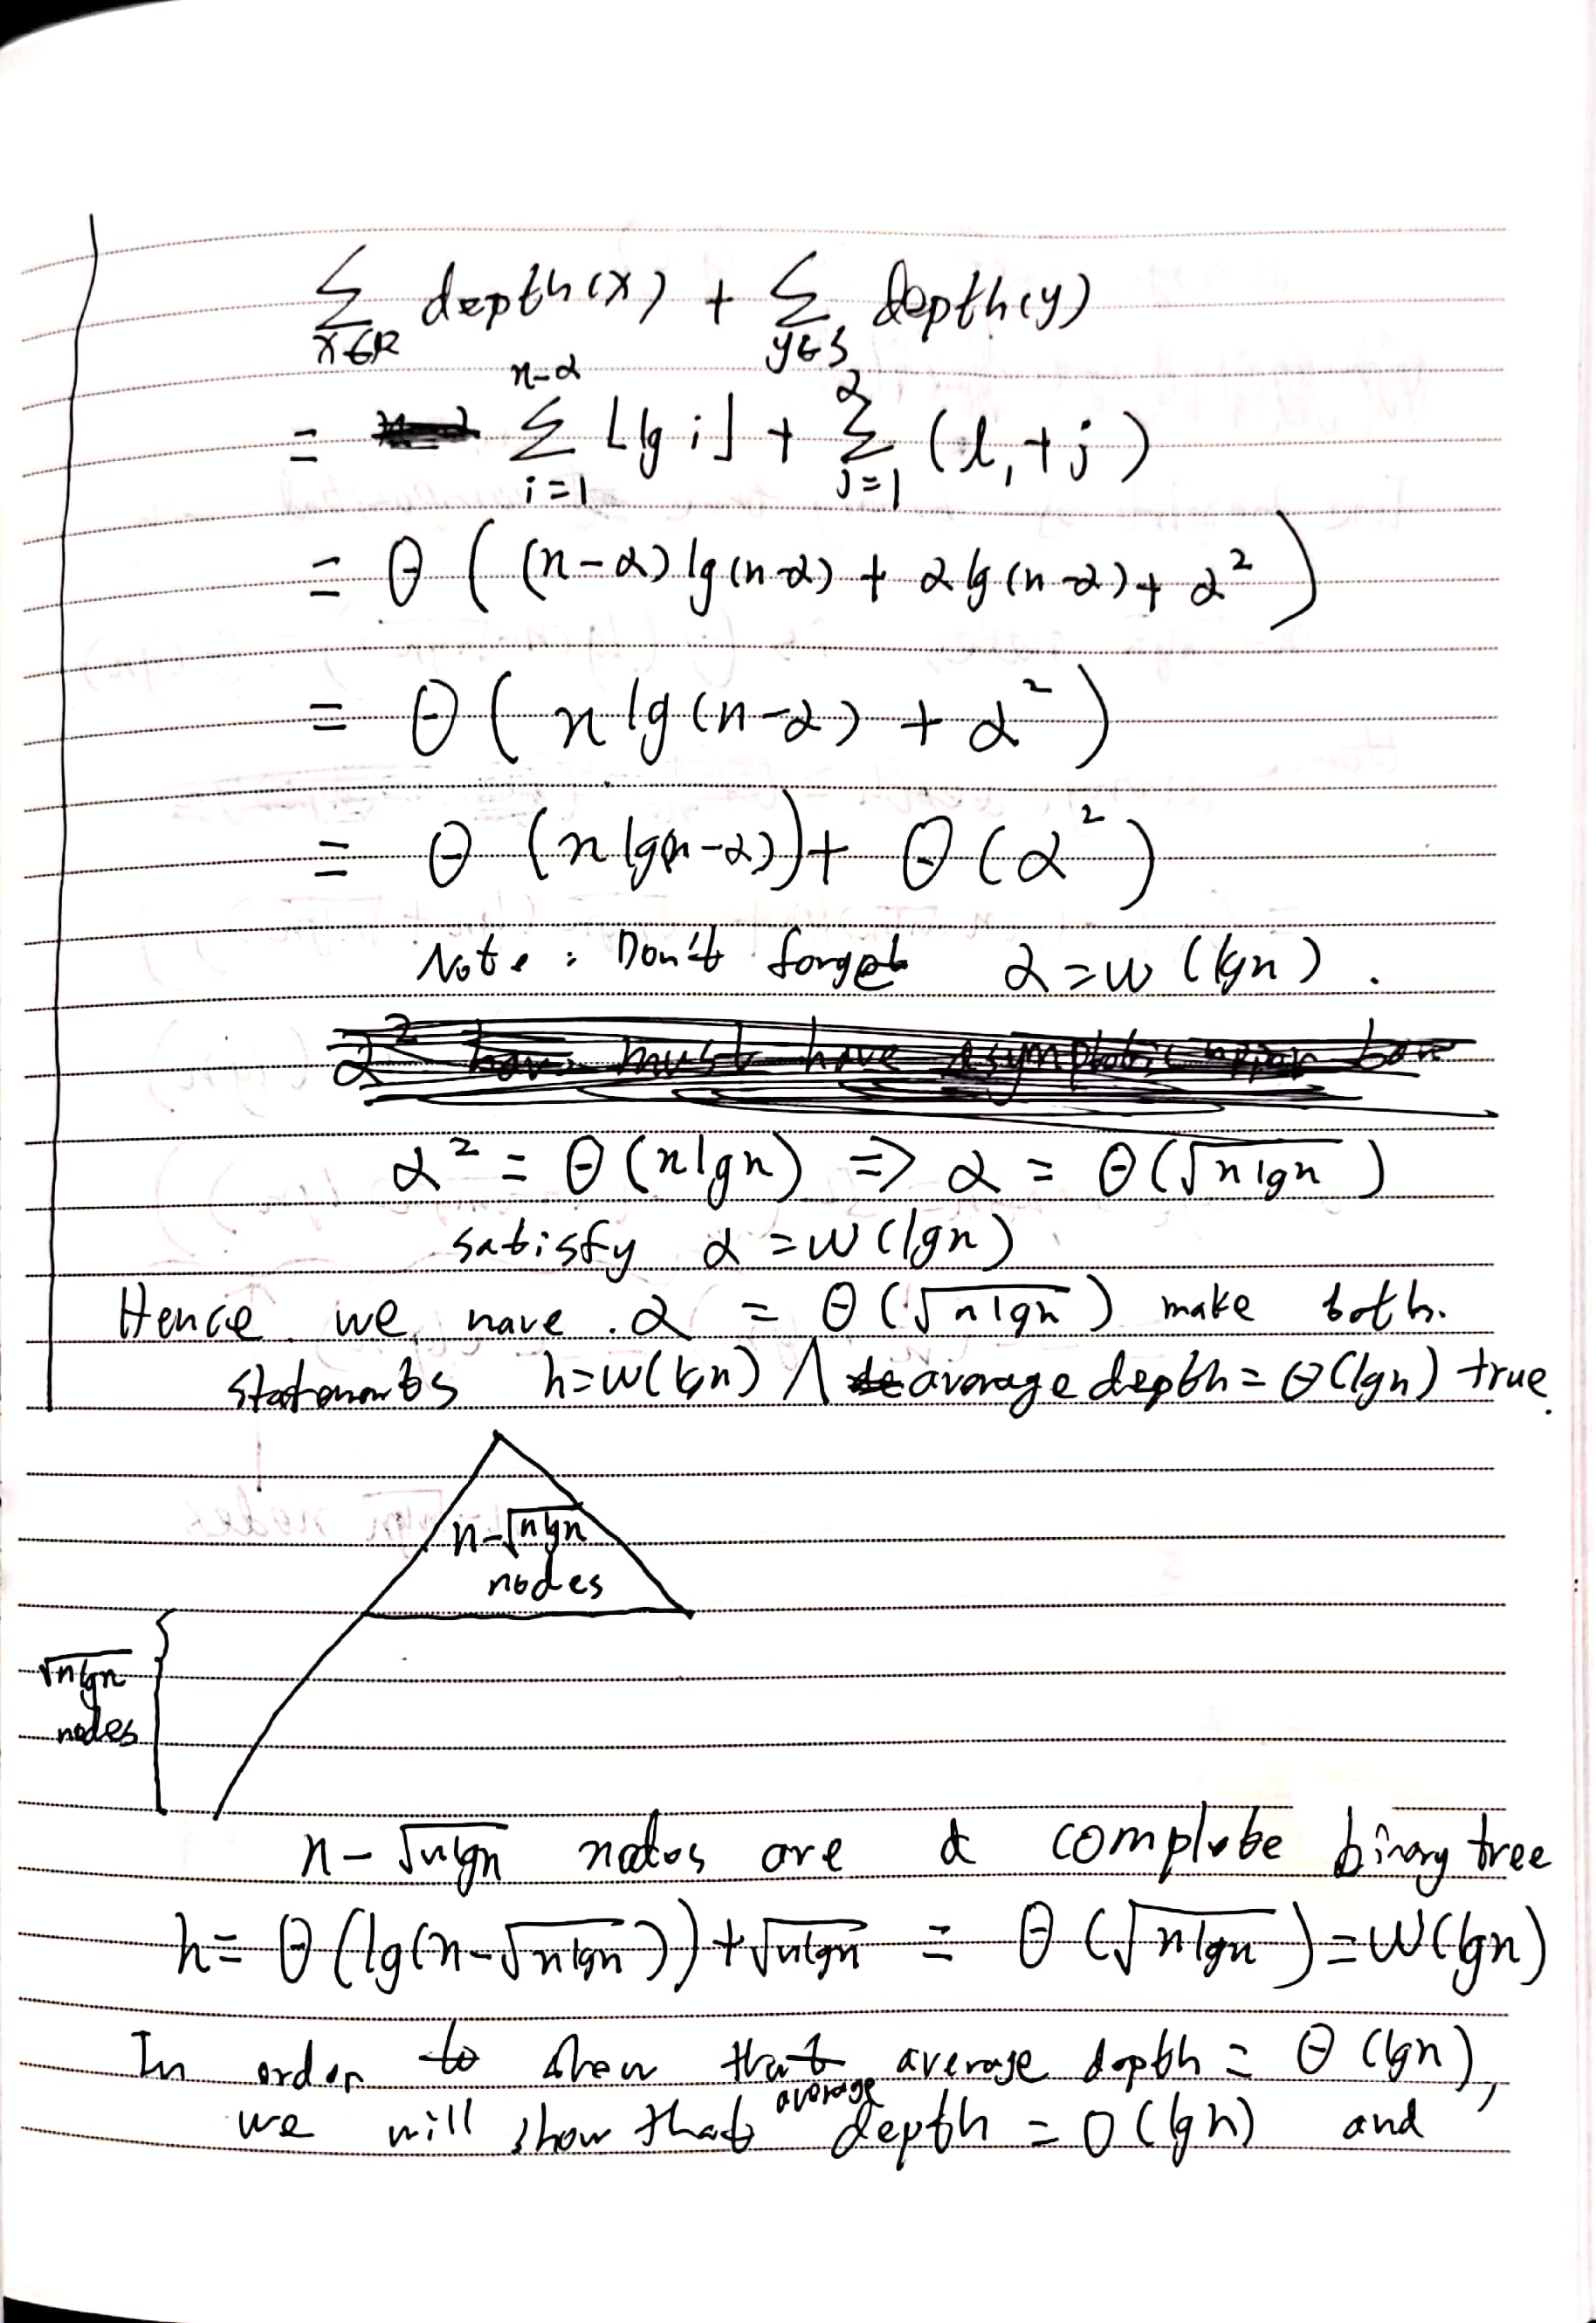 ∑_{x∈R} depth(x) + ∑_{y∈S} depth(y)
= ∑_{i=1}^{n-α} ⌊lg i⌋ + ∑_{j=1}^{α} (l₁ + j)
= Θ ( (n-α) lg(n-α) + α lg(n-α) + α² )
= Θ ( n lg(n-α) + α² )
= Θ (n lg(n-α)) + Θ (α²)
Note : Don't forget α = ω (lgn) .
α² = Θ (nlgn) => α = Θ (√nlgn)
satisfy α = ω (lgn)
Hence we have α = Θ (√nlgn) make both
statements h=ω(lgn) ∧ average depth = Θ(lgn) true.
n-√nlgn
nodes
√nlgn
nodes
n - √nlgn nodes are a complete binary tree
h = Θ (lg(n-√nlgn)) + √nlgn = Θ (√nlgn) = ω(lgn)
In order to show that average depth = Θ (lgn),
we will show that average depth = O (lgn) and